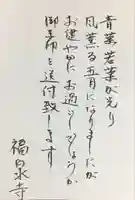 青葉若葉が光り
風薫る五月になりましたが
お健やかにお過しでしょうか
御寿布を送付致します
福泉寺